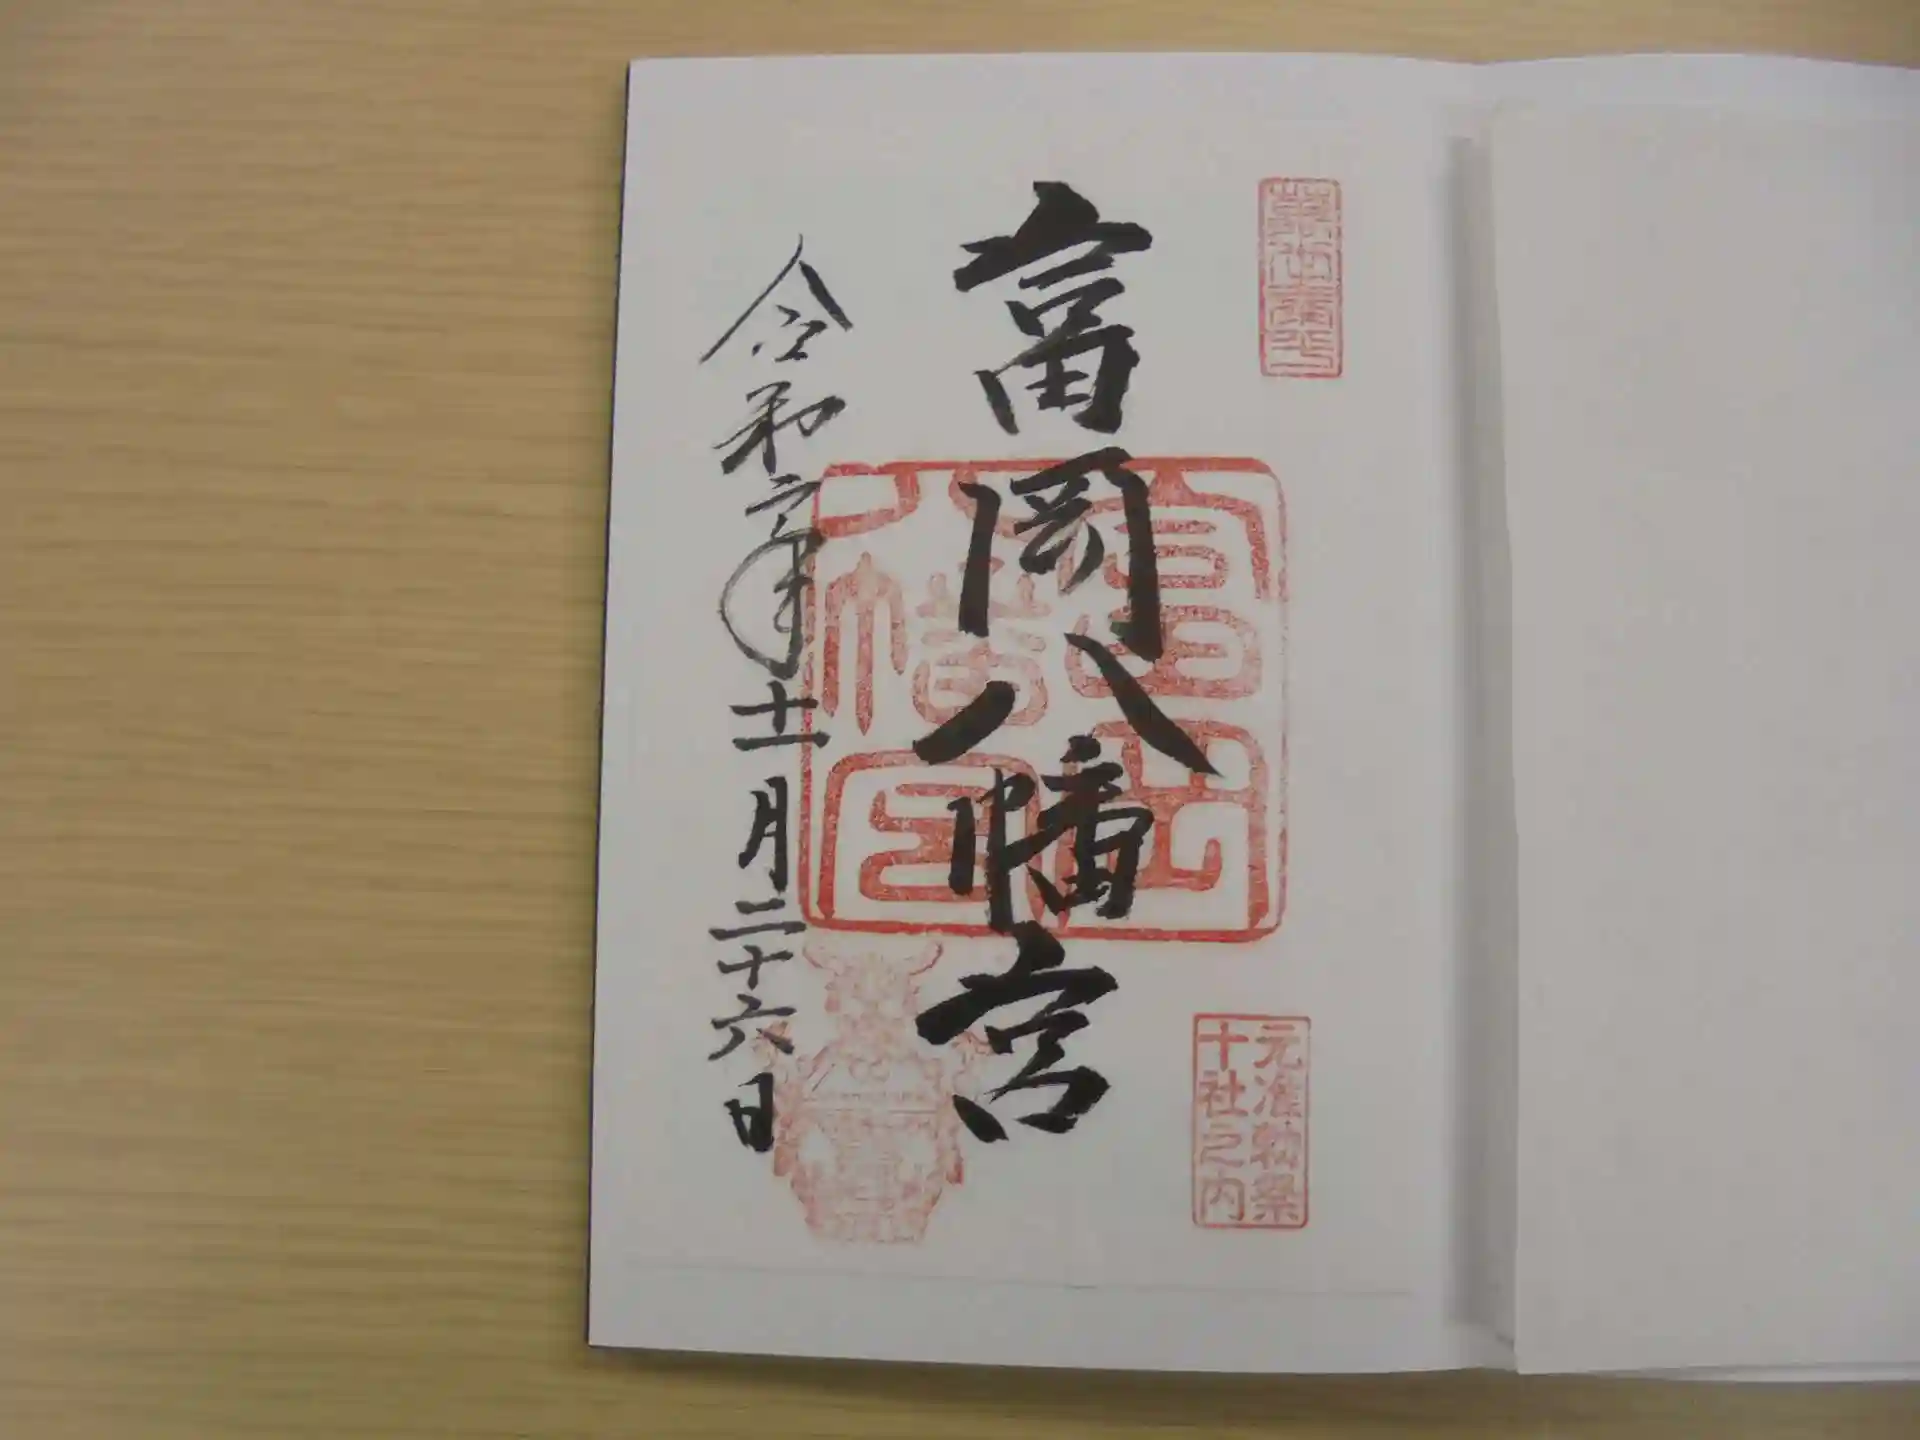 富岡八幡宮
富岡
八幡宮
元准勅祭
十社之内
令和 年十一月二十六日